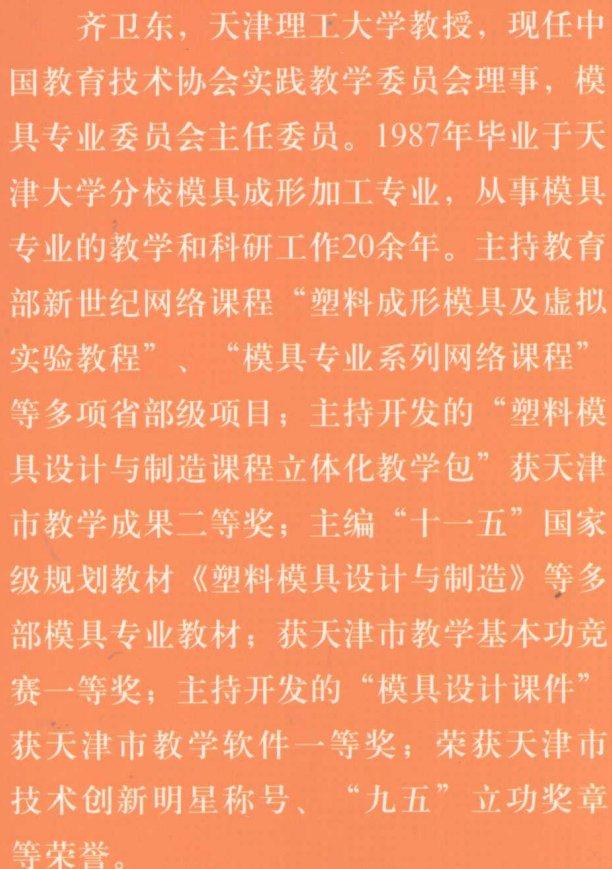 齐卫东，天津理工大学教授，现任中
国教育技术协会实践教学委员会理事，模
具专业委员会主任委员。1987年毕业于天
津大学分校模具成形加工专业，从事模具
专业的教学和科研工作20余年。主持教育
部新世纪网络课程“塑料成形模具及虚拟
实验教程”、“模具专业系列网络课程”
等多项省部级项目；主持开发的“塑料模
具设计与制造课程立体化教学包”获天津
市教学成果二等奖；主编“十一五”国家
级规划教材《塑料模具设计与制造》等多
部模具专业教材；获天津市教学基本功竞
赛一等奖；主持开发的“模具设计课件”
获天津市教学软件一等奖；荣获天津市
技术创新明星称号、“九五”立功奖章
等荣誉。